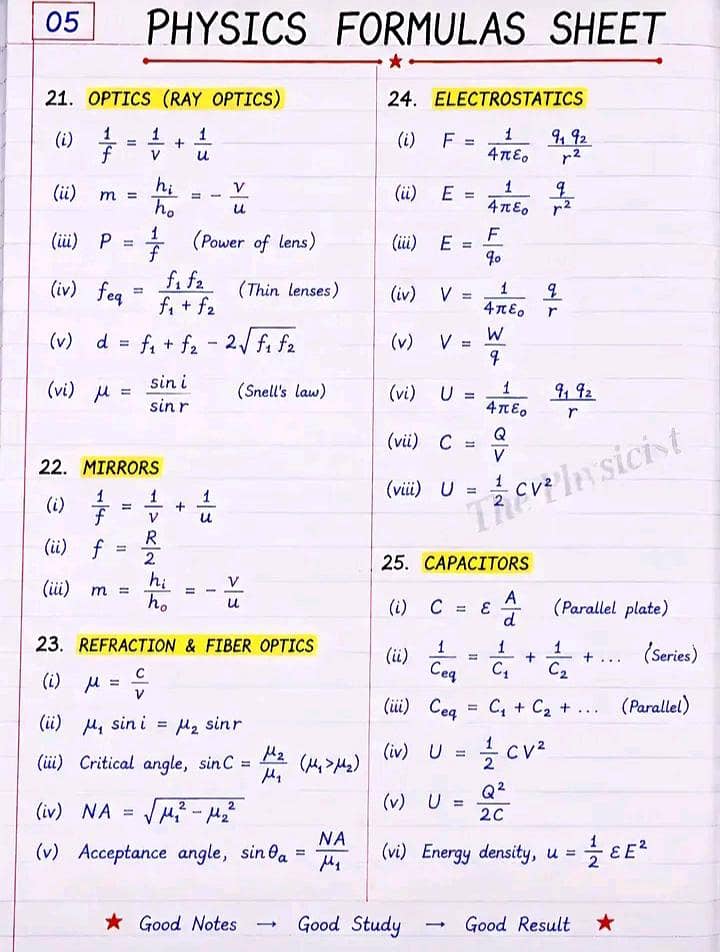 05
PHYSICS FORMULAS SHEET
21. OPTICS (RAY OPTICS)
(i) 1/f = 1/v + 1/u
(ii) m = hᵢ/hₒ = - v/u
(iii) P = 1/f (Power of lens)
(iv) f_eq = f₁ f₂ / f₁ + f₂ (Thin lenses)
(v) d = f₁ + f₂ - 2√f₁ f₂
(vi) μ = sin i / sin r (Snell's law)
22. MIRRORS
(i) 1/f = 1/v + 1/u
(ii) f = R/2
(iii) m = hᵢ/hₒ = - v/u
23. REFRACTION & FIBER OPTICS
(i) μ = c/v
(ii) μ₁ sin i = μ₂ sin r
(iii) Critical angle, sin C = μ₂/μ₁ (μ₁>μ₂)
(iv) NA = √μ₁² - μ₂²
(v) Acceptance angle, sin θₐ = NA/μ₁
24. ELECTROSTATICS
(i) F = 1/4πε₀ q₁ q₂/r²
(ii) E = 1/4πε₀ q/r²
(iii) E = F/q₀
(iv) V = 1/4πε₀ q/r
(v) V = W/q
(vi) U = 1/4πε₀ q₁ q₂/r
(vii) C = Q/V
(viii) U = 1/2 CV²
The Physicist
25. CAPACITORS
(i) C = ε A/d (Parallel plate)
(ii) 1/C_eq = 1/C₁ + 1/C₂ + ... (Series)
(iii) C_eq = C₁ + C₂ + ... (Parallel)
(iv) U = 1/2 CV²
(v) U = Q²/2C
(vi) Energy density, u = 1/2 ε E²
★ Good Notes → Good Study → Good Result ★